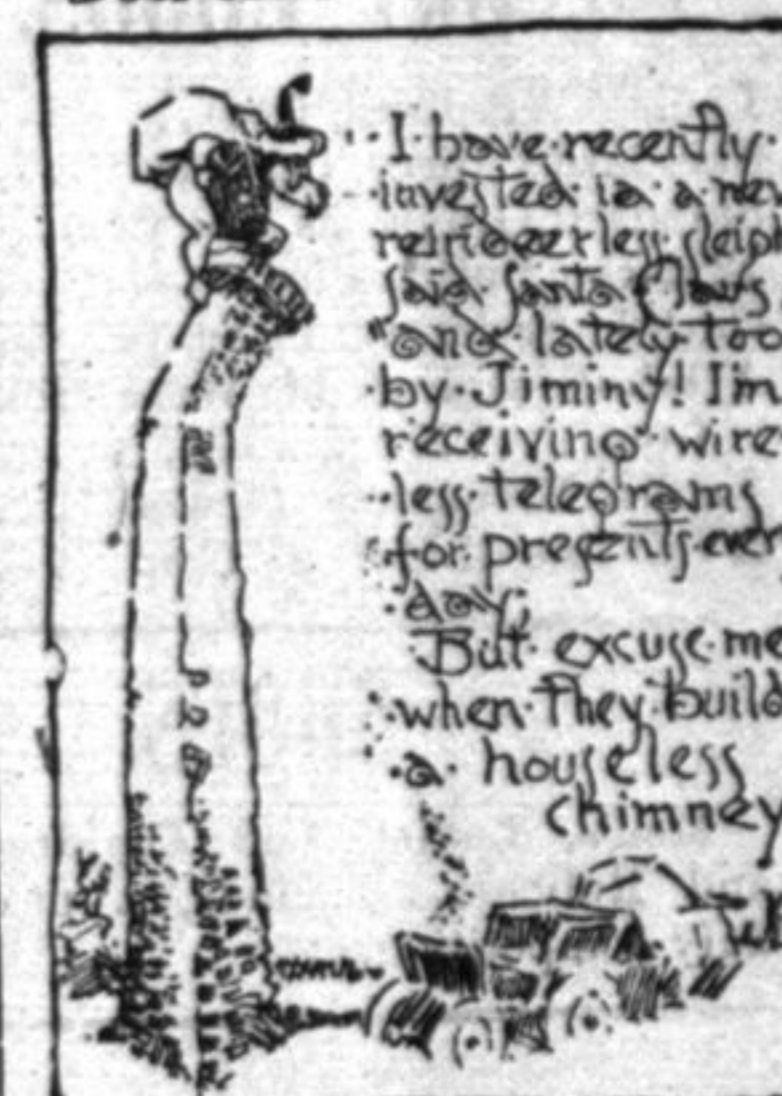 I have recently
invested in a new
reindeerless sleigh
said Santa Claus
"and lately too
by Jiminy! I'm
receiving wire
less telegrams
for presents every
day;
But excuse me
when they build
a houseless
chimney